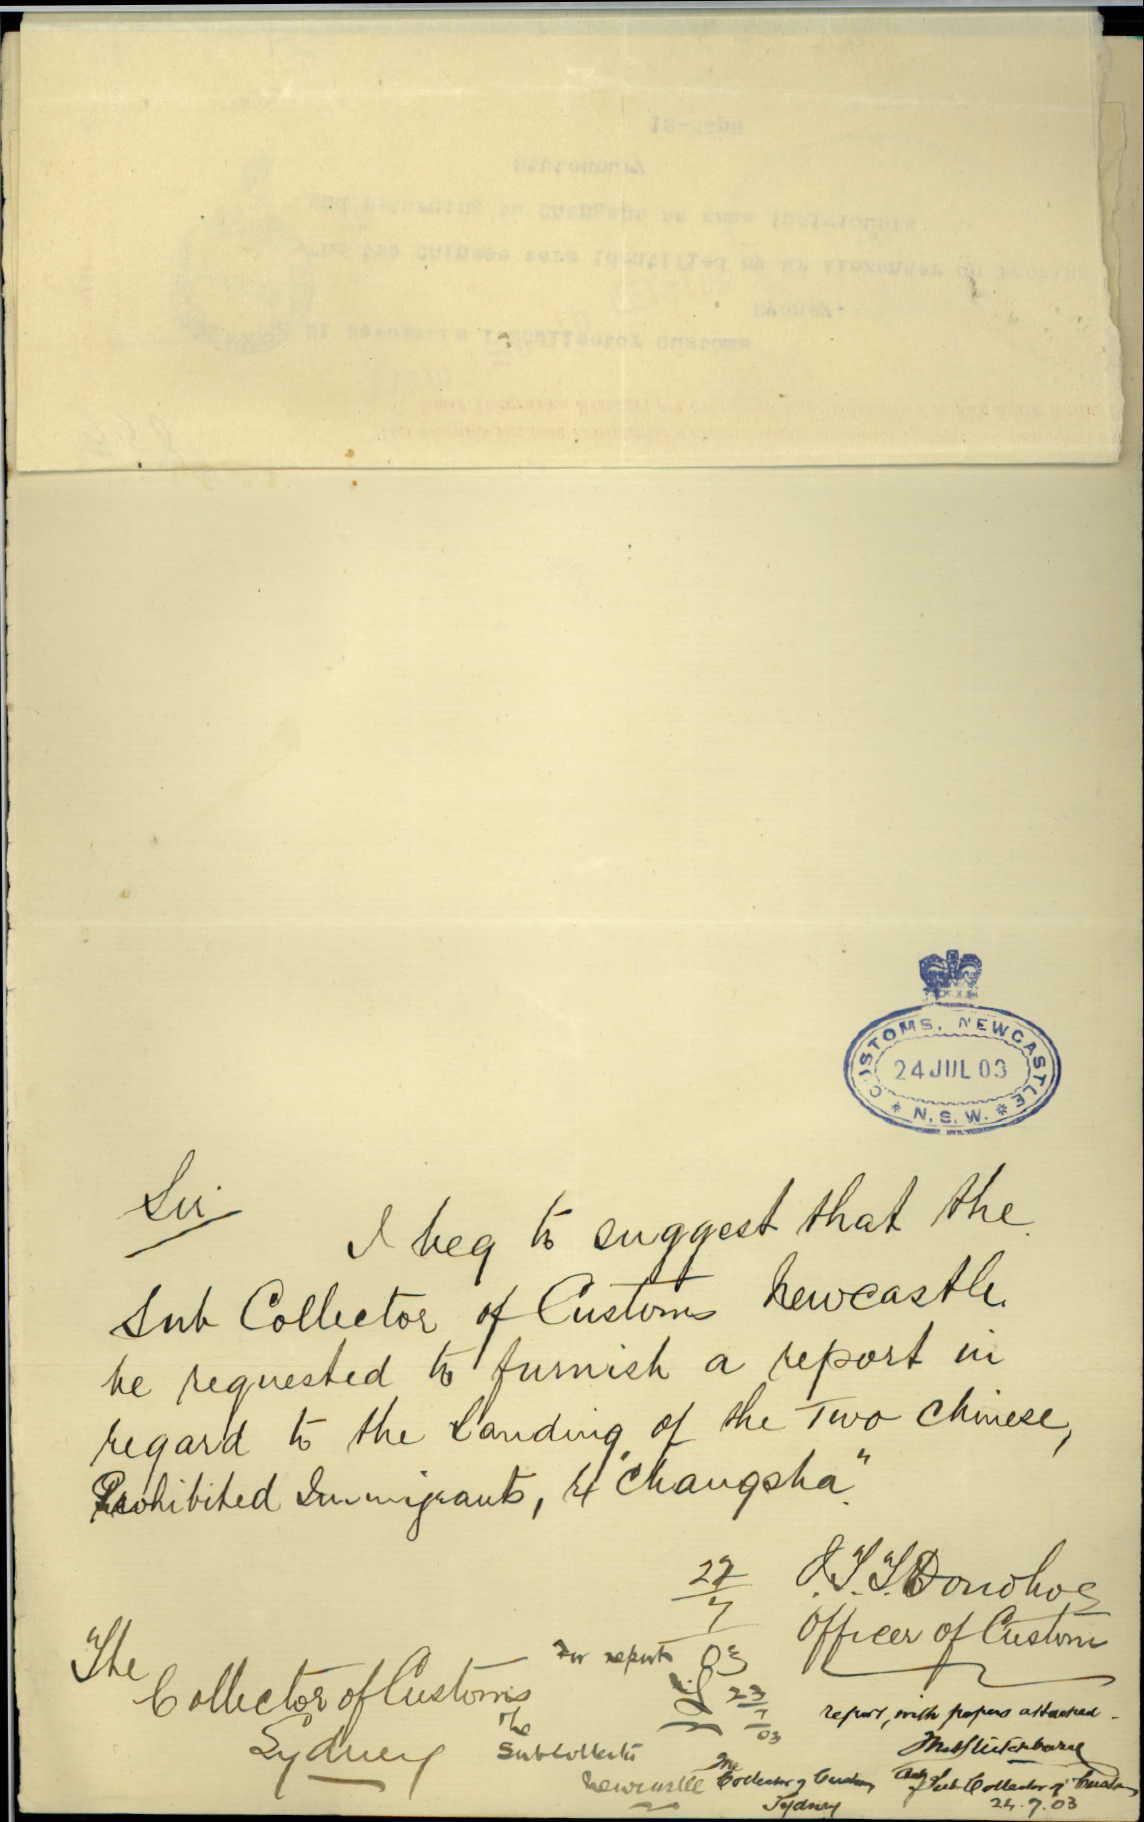 CUSTOMS, NEWCASTLE
24 JUL 03
* N.S.W. *
Sir
I beg to suggest that the
Sub Collector of Customs Newcastle
be requested to furnish a report in
regard to the landing of the Two Chinese,
Prohibited Immigrants, ex "Changsha".
22/7/03
Donohoe
Officer of Customs
The
Collector of Customs
Sydney
For report
23/7/03
The
Sub Collector
Newcastle
report, with papers attached -
Actg Sub Collector of Customs
24.7.03
The
Collector of Customs
Sydney